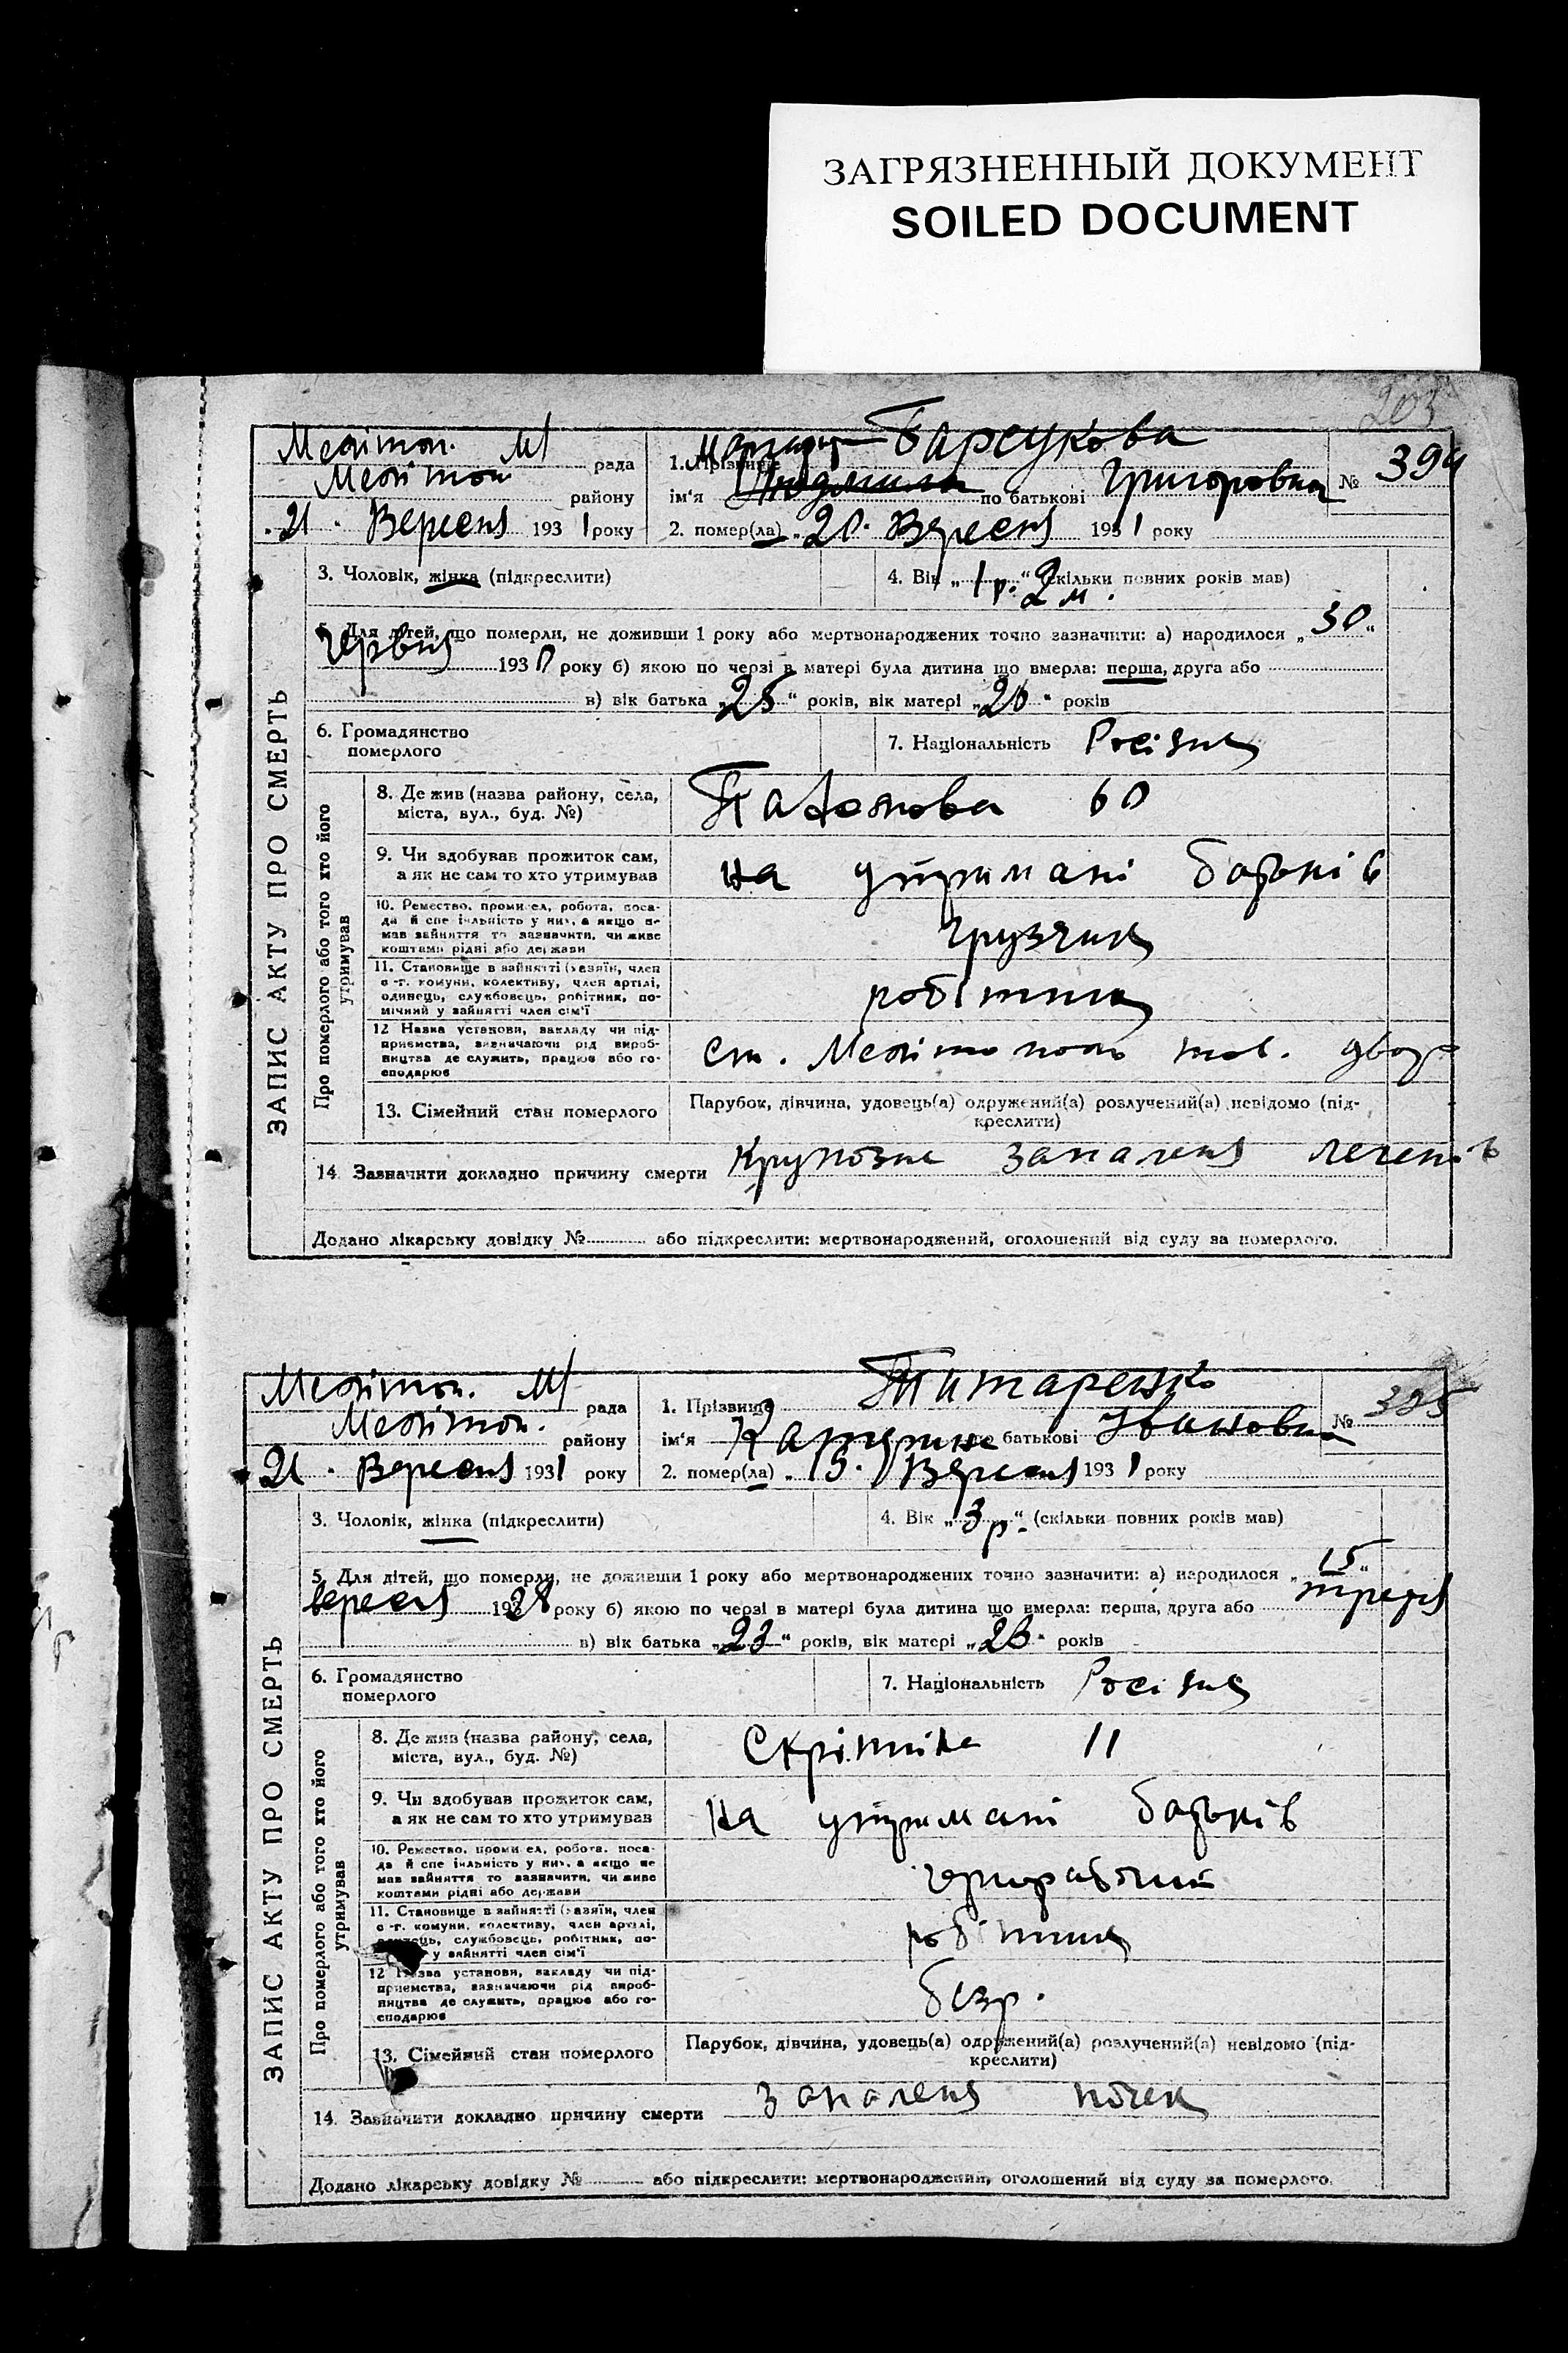 ЗАГРЯЗНЕННЫЙ ДОКУМЕНТ
SOILED DOCUMENT
203
ЗАПИС АКТУ ПРО СМЕРТЬ
Мелітоп. М/ рада
Мелітоп район у
„21“ Вересня 1931 року
1. Прізвище Барсукова
ім'я Людмила по батькові Григоровна
№ 394
2. помер(ла) „20“ Вересня 1931 року
3. Чоловік, жінка (підкреслити)
4. Вік „1 р. 2 м.“ (скільки повних років мав)
5. Для дітей, що померли, не доживши 1 року або мертвонароджених точно зазначити: а) народилося „30“
Червня 1930 року б) якою по черзі в матері була дитина що вмерла: перша, друга або
в) вік батька „25“ років, вік матері „20“ років
6. Громадянство померлого
7. Національність Росіянк
Про померлого або того хто його утримував
8. Де жив (назва району, села, міста, вул., буд. №)
60
9. Чи здобував прожиток сам, а як не сам то хто утримував
на утримані батьків
10. Ремество, промисел, робота, посада й спеціяльність у них, а якщо не мав зайняття то зазначити, чи живе коштами рідні або держави
грузчик
11. Становище в зайнятті (хазяїн, член с.-г. комуни, колективу, член артілі, одинець, службовець, робітник, помічний у зайнятті член сім'ї
робітник
12 Назва установи, закладу чи підприємства, зазначаючи рід виробництва де служить, працює або господарює
ст. Мелітополь тов. двор
13. Сімейний стан померлого
Парубок, дівчина, удовець(а) одружений(а) розлучений(а) невідомо (підкреслити)
14 Зазначити докладно причину смерти Крупозне запаленя легенів
Додано лікарську довідку № або підкреслити: мертвонароджений, оголошений від суду за померлого.
ЗАПИС АКТУ ПРО СМЕРТЬ
Мелітоп. М/ рада
Мелітоп. району
„21“ Вересня 1931 року
1. Прізвище Титаренко
ім'я Катерина по батькові Івановна
№ 395
2. помер(ла) „15“ Вересня 1931 року
3. Чоловік, жінка (підкреслити)
4. Вік „3 р.“ (скільки повних років мав)
5. Для дітей, що померли, не доживши 1 року або мертвонароджених точно зазначити: а) народилося „15“
вересня 1928 року б) якою по черзі в матері була дитина що вмерла: перша, друга або третя
в) вік батька „23“ років, вік матері „23“ років
6. Громадянство померлого
7. Національність Росіянк
Про померлого або того хто його утримував
8. Де жив (назва району, села, міста, вул., буд. №)
11
9. Чи здобував прожиток сам, а як не сам то хто утримував
на утримані батьків
10. Ремество, промисел, робота, посада й спеціяльність у них, а якщо не мав зайняття то зазначити, чи живе коштами рідні або держави
чернорабочий
11. Становище в зайнятті (хазяїн, член с.-г. комуни, колективу, член артілі, одинець, службовець, робітник, помічний у зайнятті член сім'ї
робітник
12 Назва установи, закладу чи підприємства, зазначаючи рід виробництва де служить, працює або господарює
безр.
13. Сімейний стан померлого
Парубок, дівчина, удовець(а) одружений(а) розлучений(а) невідомо (підкреслити)
14. Зазначити докладно причину смерти запаленя почек
Додано лікарську довідку № або підкреслити: мертвонароджений, оголошений від суду за померлого.